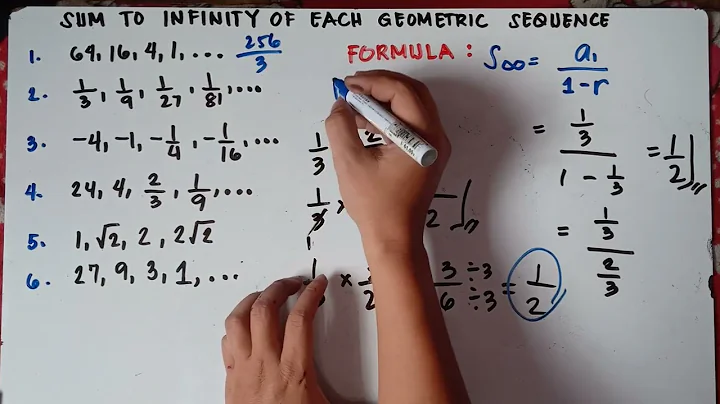 SUM TO INFINITY OF EACH GEOMETRIC SEQUENCE
1. 64, 16, 4, 1, ... 256/3
2. 1/3, 1/9, 1/27, 1/81, ...
3. -4, -1, -1/4, -1/16, ...
4. 24, 4, 2/3, 1/9, ...
5. 1, √2, 2, 2√2
6. 27, 9, 3, 1, ...
FORMULA: S∞ = a₁/1-r
= 1/3 / 1 - 1/3 = 1/2
= 1/3 / 2/3
1/3 2
1/3 × 2
1
× 2 3÷3/6÷3 = 1/2